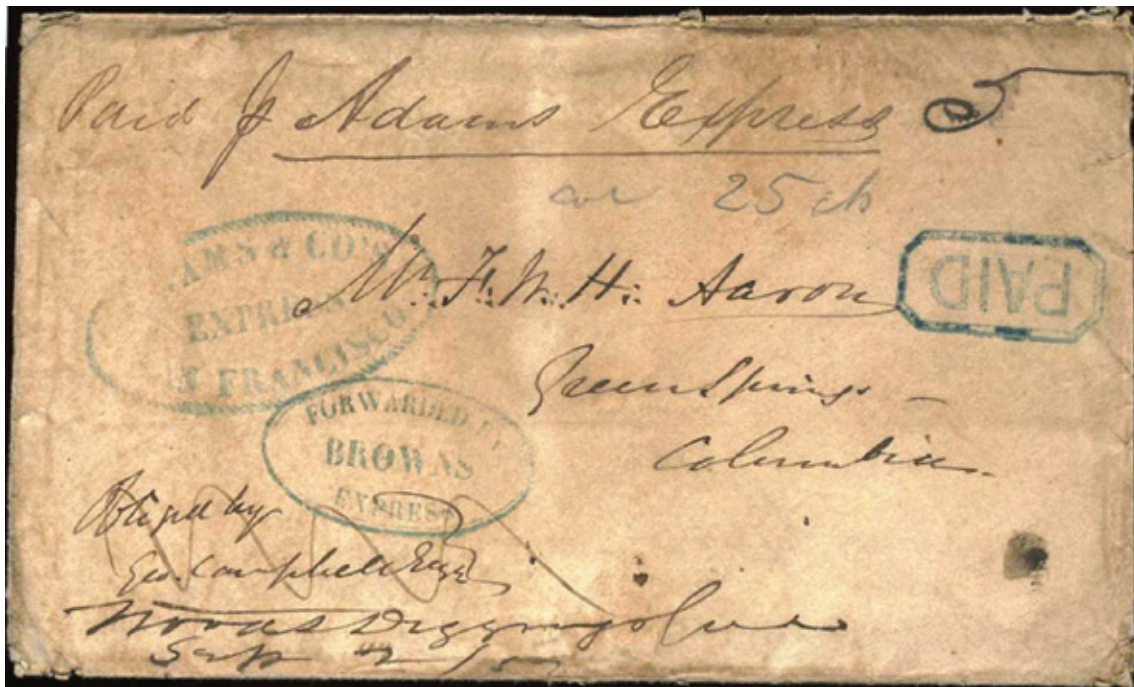 Paid p Adams Express
col 25 cts
AMS & CO'S
EXPRESS
N FRANCISCO
Mr. F. W. H. Aaron
PAID
Green Springs -
Columbia
FORWARDED BY
BROWNS
EXPRESS
by
Geo. Campbell Esq
Woods Diggings